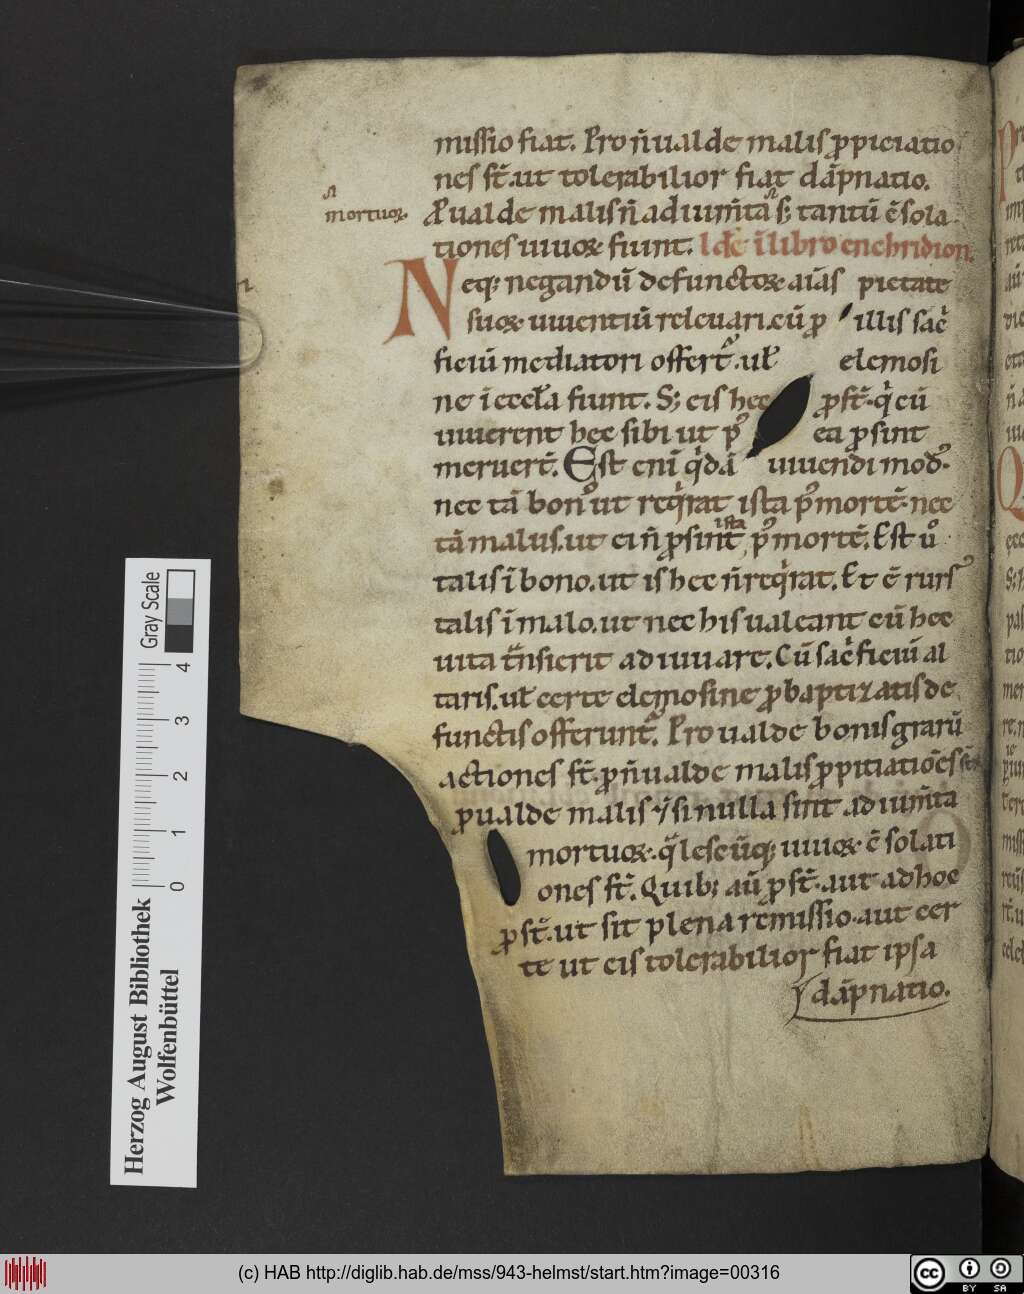 missio fiat. Pro n̄ ualde malis p̱piciatio
nes st̄. ut tolerabilior fiat dāpnatio.
mortuoꝝ
Pualde malis n̄ adium̄ta s; tantū ē sola
tiones uiuoꝝ fiunt. Idē ī libro enchridion.
Neq; negandū defunctoꝝ aīas pietate
suoꝝ uiuentiū releuari. cū ꝓ illis sac̄
ficiū mediatoris offert᷑. uł elemosi
ne ī eccła fiunt. S; eis hec ꝓst̄. q̇ cū
uiuerent hec sibi ut pꝰ ea ꝓsint
meruer̄. Est enī q̇dā uiuendi modꝰ.
nec tā bonꝰ ut req̇rat ista pꝰ mortē. nec
tā malus. ut ei n̄ ꝓsint ista pꝰ mortē. Est ůo
talis ī bono. ut is hec n̄ req̇rat. Et ē rursꝰ
talis ī malo. ut nec his ualeant cū hec
uita t̄nsierit adiuuare. Cū sac̄ficiū al
taris. uł certe elemosine ꝓ baptizatis de
functis offerunt᷑. Pro ualde bonis grarū
actiones st̄. ꝓ n̄ ualde malis ꝓpitiatiōes st̄
ꝓ ualde malis ⁊ si nulla sint adium̄ta
mortuoꝝ. q̄lescūq; uiuoꝝ ē solati
ones st̄. Quib; aū ꝓst̄. aut ad hoc
ꝓst̄. ut sit plena remissio. aut cer
te ut eis tolerabilior fiat ipsa
dāpnatio.
Gray Scale
0 1 2 3 4
Herzog August Bibliothek
Wolfenbüttel
(c) HAB http://diglib.hab.de/mss/943-helmst/start.htm?image=00316
cc BY SA